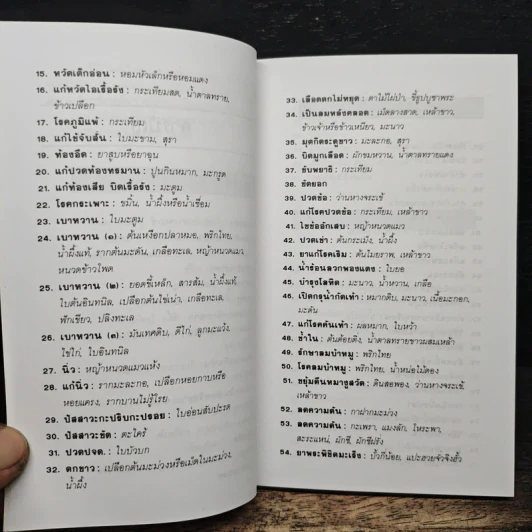 15. หวัดเด็กอ่อน : หอมหัวเล็กหรือหอมแดง
16. แก้หวัดไอเรื้อรัง : กระเทียมสด, น้ำตาลทราย,
ข้าวเปลือก
17. โรคภูมิแพ้ : กระเทียม
18. แก้ไข้จับสั่น : ใบมะขาม, สุรา
19. ท้องอืด : ยาสูบหรือยาฉุน
20. แก้ปวดท้องทรมาน : ปูนกินหมาก, มะกรูด
21. แก้ท้องเสีย บิดเรื้อรัง : มะตูม
22. โรคกระเพาะ : ขมิ้น, น้ำผึ้งหรือน้ำเชื่อม
23. เบาหวาน : ใบมะตูม
24. เบาหวาน (๑) : ต้นเหงือกปลาหมอ, พริกไทย,
น้ำผึ้งแท้, รากต้นมะดัน, เกลือทะเล, หญ้าหนวดแมว,
หนวดข้าวโพด
25. เบาหวาน (๒) : ยอดขี้เหล็ก, สารส้ม, น้ำผึ้งแท้,
ใบต้นอินทนิล, เปลือกต้นไข่เน่า, เกลือทะเล,
ฟักเขียว, ปลิงทะเล
26. เบาหวาน (๓) : มันเทศดิบ, ดีไก่, ลูกมะแว้ง,
ไข่ไก่, ใบอินทนิล
27. นิ่ว : หญ้าหนวดแมวแห้ง
28. แก้นิ่ว : รากมะละกอ, เปลือกหอยกาบหรือ
หอยแครง, รากบานไม่รู้โรย
29. ปัสสาวะกะปริบกะปรอย : ใบอ่อนสับปะรด
30. ปัสสาวะขัด : ตะไคร้
31. ปวดปจด. : ใบบัวบก
32. ตกขาว : เปลือกต้นมะม่วงหรือเม็ดในมะม่วง,
น้ำผึ้ง
33. เลือดตกไม่หยุด : ตาไม้ไผ่ป่า, ขี้ธูปบูชาพระ
34. เป็นลมหลังคลอด : เม็ดลางสาด, เหล้าขาว,
ข้าวเจ้าหรือข้าวเหนียว, มะนาว
35. มุตกิตระดูขาว : มะละกอ, สุรา
36. บิดมูกเลือด : มักขมหวาน, น้ำตาลทรายแดง
37. ขับพยาธิ : กระเทียม
38. ขัดยอก
39. ปวดข้อ : ว่านหางจระเข้
40. แก้โรคปวดข้อ : กระเทียม, เหล้าขาว
41. ไขข้ออักเสบ : หญ้าหนวดแมว
42. ปวดเข่า : ต้นกระเม็ง, น้ำผึ้ง
43. ยาแก้โรคเริม : ต้นไมยราพ, เหล้าขาว
44. น้ำร้อนลวกพองแดง : ใบยอ
45. บำรุงโลหิต : มะนาว, น้ำหวาน, เกลือ
46. เปิดกรุน้ำกัดเท้า : หมากดิบ, มะนาว, เนื้อมะกอก,
มะดัน
47. แก้โรคคันเท้า : ผลหมาก, ใบหว้า
48. ช้ำใน : ต้นต้อยติ่ง, น้ำตาลทรายขาวผสมเหล้า
49. รักษาลมบ้าหมู : พริกไทย
50. โรคลมบ้าหมู : พริกไทย, น้ำหน่อไม้ดอง
51. ขยุ้มตีนหมางูสวัด : ดินสอพอง, ว่านหางจระเข้,
เหล้าขาว
52. ลดความดัน : กาฝากมะม่วง
53. ลดความดัน : กะเพรา, แมงลัก, โหระพา,
สะระแหน่, ผักชี, ผักชีฝรั่ง
54. ยาพระพิชิตมะเร็ง : บั้วกี่น้อย, แปะฮวยจั่วจิงฮั้ว